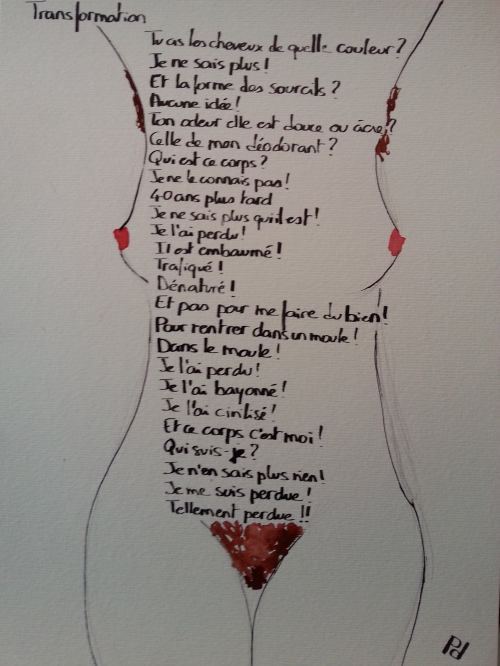 Transformation
Tu as les cheveux de quelle couleur?
Je ne sais plus!
Et la forme des sourcils?
Aucune idée!
Ton odeur elle est douce ou âcre?
Celle de mon déodorant?
Qui est ce corps?
Je ne le connais pas!
40 ans plus tard
Je ne sais plus qui il est!
Je l'ai perdu!
Il est embaumé!
Trafiqué!
Dénaturé!
Et pas pour me faire du bien!
Pour rentrer dans un moule!
Dans le moule!
Je l'ai perdu!
Je l'ai bayonné!
Je l'ai civilisé!
Et ce corps c'est moi!
Qui suis-je?
Je n'en sais plus rien!
Je me suis perdue!
Tellement perdue!!
Pd